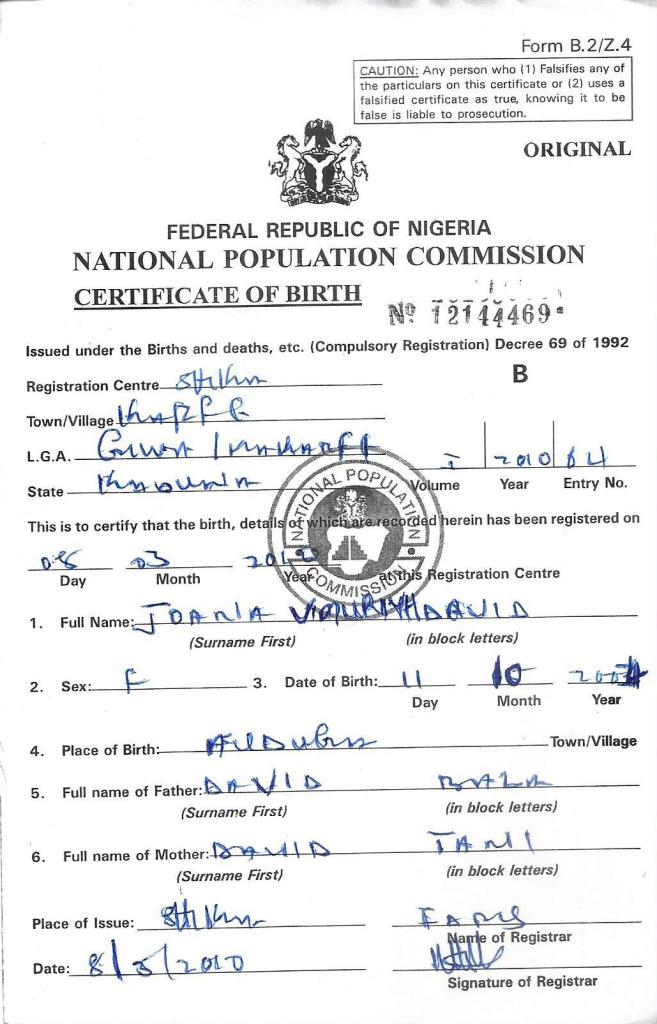 Form B.2/Z.4
CAUTION: Any person who (1) Falsifies any of
the particulars on this certificate or (2) uses a
falsified certificate as true, knowing it to be
false is liable to prosecution.
ORIGINAL
FEDERAL REPUBLIC OF NIGERIA
NATIONAL POPULATION COMMISSION
CERTIFICATE OF BIRTH
Nº 12144469
Issued under the Births and deaths, etc. (Compulsory Registration) Decree 69 of 1992
B
Registration Centre
Town/Village
L.G.A.
I 2010 64
State KADUNA
Volume Year Entry No.
This is to certify that the birth, details of which are recorded herein has been registered on
08 03
Day Month Year at this Registration Centre
NATIONAL POPULATION COMMISSION
1. Full Name: DAVID
(Surname First) (in block letters)
2. Sex: F 3. Date of Birth: 11 10
Day Month Year
4. Place of Birth: Town/Village
5. Full name of Father: DAVID BALA
(Surname First) (in block letters)
6. Full name of Mother: DAVID TANI
(Surname First) (in block letters)
Place of Issue:
Name of Registrar
Date: 8/3/2010
Signature of Registrar